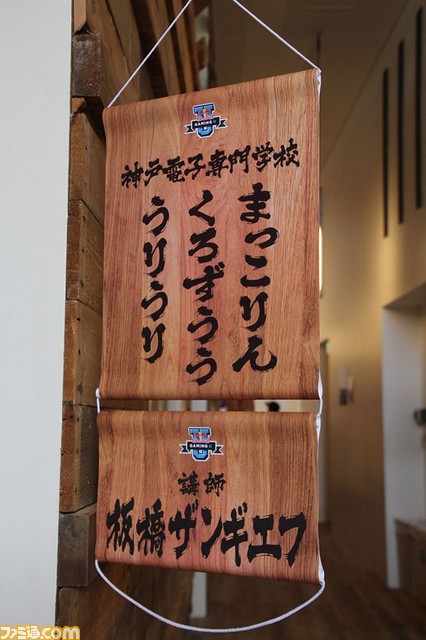 GAMING U
神戸電子専門学校
まっこりん
くろずうう
うりうり
GAMING U
講師
板橋ザンギエフ
ファミ通.com